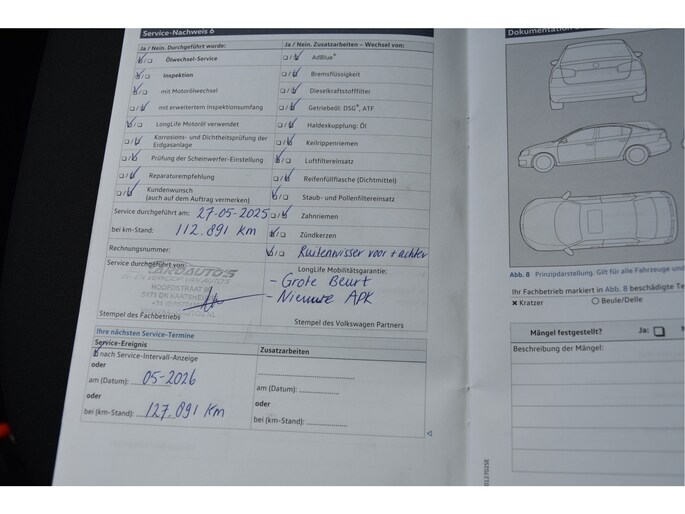 Service-Nachweis 6
Ja / Nein. Durchgeführt wurde:
Ölwechsel-Service
Inspektion
mit Motorölwechsel
mit erweitertem Inspektionsumfang
LongLife Motoröl verwendet
Korrosions- und Dichtheitsprüfung der
Erdgasanlage
Prüfung der Scheinwerfer-Einstellung
Reparaturempfehlung
Kundenwunsch
(auch auf dem Auftrag vermerken)
Service durchgeführt am: 27-05-2025
bei km-Stand: 112.891 km
Rechnungsnummer:
Service durchgeführt von:
HOOFDSTRAAT
Stempel des Fachbetriebs
Ja / Nein. Zusatzarbeiten – Wechsel von:
AdBlue®
Bremsflüssigkeit
Dieselkraftstofffilter
Getriebeöl: DSG®, ATF
Haldexkupplung: Öl
Keilrippenriemen
Luftfiltereinsatz
Reifenfüllflasche (Dichtmittel)
Staub- und Pollenfiltereinsatz
Zahnriemen
Zündkerzen
Ruitenwisser voor + achter
LongLife Mobilitätsgarantie:
- Grote Beurt
- Nieuwe APK
Stempel des Volkswagen Partners
Ihre nächsten Service-Termine
Service-Ereignis
nach Service-Intervall-Anzeige
oder
am (Datum): 05-2026
oder
bei (km-Stand): 127.891 km
Zusatzarbeiten
am (Datum):
oder
bei (km-Stand):
Dokumentation
Abb. 8 Prinzipdarstellung. Gilt für alle Fahrzeuge und
Ihr Fachbetrieb markiert in Abb. 8 beschädigte
× Kratzer ○ Beule/Delle
Mängel festgestellt? Ja:
Beschreibung der Mängel: